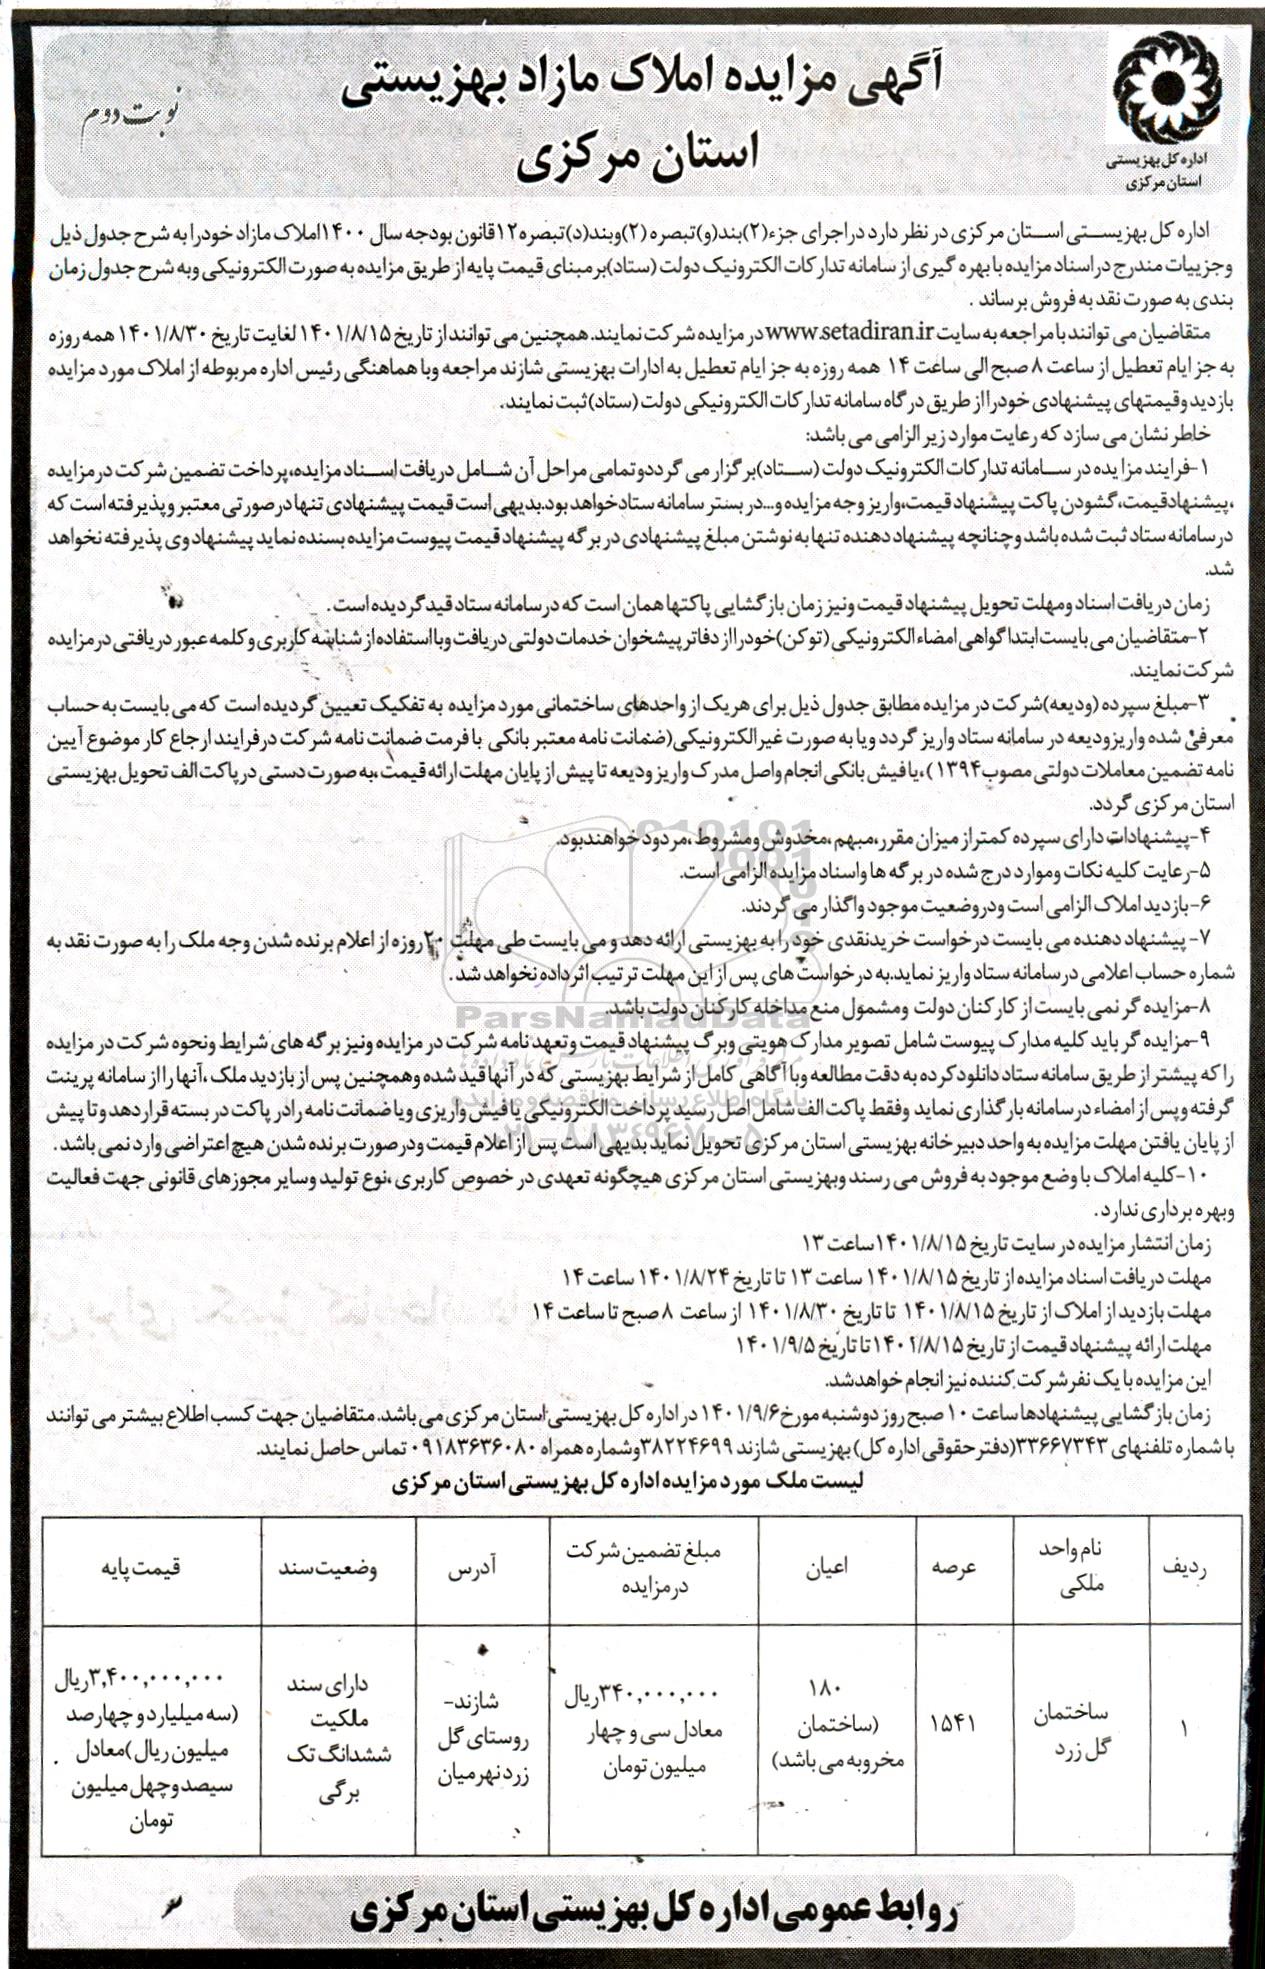 آگهی مزایده املاک مازاد بهزیستی
استان مرکزی
نوبت دوم
اداره کل بهزیستی
استان مرکزی
اداره کل بهزیستی استان مرکزی در نظر دارد در اجرای جزء(۲)بند(و)تبصره (۲)وبند(د)تبصره۱۲قانون بودجه سال ۱۴۰۰املاک مازاد خودرا به شرح جدول ذیل
وجزییات مندرج دراسناد مزایده با بهره گیری از سامانه تدارکات الکترونیک دولت (ستاد)برمبنای قیمت پایه از طریق مزایده به صورت الکترونیکی وبه شرح جدول زمان
بندی به صورت نقد به فروش برساند .
متقاضیان می توانند با مراجعه به سایت www.setadiran.ir در مزایده شرکت نمایند. همچنین می توانند از تاریخ ۱۴۰۱/۸/۱۵ لغایت تاریخ ۱۴۰۱/۸/۳۰ همه روزه
به جز ایام تعطیل از ساعت ۸ صبح الی ساعت ۱۴ همه روزه به جز ایام تعطیل به ادارات بهزیستی شازند مراجعه وبا هماهنگی رئیس اداره مربوطه از املاک مورد مزایده
بازدید وقیمتهای پیشنهادی خودرا از طریق درگاه سامانه تدارکات الکترونیکی دولت (ستاد)ثبت نمایند.
خاطر نشان می سازد که رعایت موارد زیر الزامی می باشد:
۱-فرایند مزایده در سامانه تدارکات الکترونیک دولت (ستاد)برگزار می گرددوتمامی مراحل آن شامل دریافت اسناد مزایده،پرداخت تضمین شرکت درمزایده
،پیشنهادقیمت، گشودن پاکت پیشنهاد قیمت،واریز وجه مزایده و...در بستر سامانه ستادخواهد بود.بدیهی است قیمت پیشنهادی تنها درصورتی معتبر وپذیرفته است که
در سامانه ستاد ثبت شده باشد وچنانچه پیشنهاد دهنده تنها به نوشتن مبلغ پیشنهادی در برگه پیشنهاد قیمت پیوست مزایده بسنده نماید پیشنهاد وی پذیرفته نخواهد
شد.
زمان دریافت اسناد ومهلت تحویل پیشنهاد قیمت ونیز زمان بازگشایی پاکتها همان است که در سامانه ستاد قید گردیده است.
۲-متقاضیان می بایست ابتدا گواهی امضاء الکترونیکی (توکن)خودرا از دفاتر پیشخوان خدمات دولتی دریافت وبا استفاده از شناسه کاربری و کلمه عبور دریافتی درمزایده
شرکت نمایند.
۳-مبلغ سپرده (ودیعه)شرکت در مزایده مطابق جدول ذیل برای هریک از واحدهای ساختمانی مورد مزایده به تفکیک تعیین گردیده است که می بایست به حساب
معرفی شده واریزودیعه در سامانه ستاد واریز گردد ویا به صورت غیرالکترونیکی(ضمانت نامه معتبر بانکی با فرمت ضمانت نامه شرکت درفرایند ارجاع کار موضوع آیین
نامه تضمین معاملات دولتی مصوب۱۳۹۴)،یا فیش بانکی انجام واصل مدرک واریز ودیعه تا پیش از پایان مهلت ارائه قیمت،به صورت دستی در پاکت الف تحویل بهزیستی
استان مرکزی گردد.
۴-پیشنهادات دارای سپرده کمتر از میزان مقرر،مبهم ،مخدوش ومشروط ،مردود خواهندبود.
۵-رعایت کلیه نکات وموارد درج شده در برگه ها واسناد مزایده الزامی است.
۶-بازدید املاک الزامی است ودروضعیت موجود واگذار می گردند.
۷- پیشنهاد دهنده می بایست درخواست خریدنقدی خود را به بهزیستی ارائه دهد و می بایست طی مهلت ۲۰روزه از اعلام برنده شدن وجه ملک را به صورت نقد به
شماره حساب اعلامی در سامانه ستاد واریز نماید.به درخواست های پس از این مهلت ترتیب اثر داده نخواهد شد.
۸-مزایده گر نمی بایست از کارکنان دولت ومشمول منع مداخله کارکنان دولت باشد.
۹-مزایده گر باید کلیه مدارک پیوست شامل تصویر مدارک هویتی وبرگ پیشنهاد قیمت وتعهد نامه شرکت در مزایده ونیز برگه های شرایط ونحوه شرکت در مزایده
را که پیشتر از طریق سامانه ستاد دانلود کرده به دقت مطالعه وبا آگاهی کامل از شرایط بهزیستی که در آنها قید شده وهمچنین پس از بازدید ملک ،آنها را از سامانه پرینت
گرفته و پس از امضاء در سامانه بارگذاری نماید وفقط پاکت الف شامل اصل رسید پرداخت الکترونیکی یا فیش واریزی ویا ضمانت نامه رادر پاکت در بسته قرار دهد وتا پیش
از پایان یافتن مهلت مزایده به واحد دبیرخانه بهزیستی استان مرکزی تحویل نماید بدیهی است پس از اعلام قیمت ودرصورت برنده شدن هیچ اعتراضی وارد نمی باشد .
۱۰-کلیه املاک با وضع موجود به فروش می رسند وبهزیستی استان مرکزی هیچگونه تعهدی در خصوص کاربری ،نوع تولید وسایر مجوزهای قانونی جهت فعالیت
وبهره برداری ندارد.
زمان انتشار مزایده در سایت تاریخ ۱۴۰۱/۸/۱۵ساعت ۱۳
مهلت دریافت اسناد مزایده از تاریخ ۱۴۰۱/۸/۱۵ ساعت ۱۳ تا تاریخ ۱۴۰۱/۸/۲۴ ساعت ۱۴
مهلت بازدید از املاک از تاریخ ۱۴۰۱/۸/۱۵ تا تاریخ ۱۴۰۱/۸/۳۰ از ساعت ۸ صبح تا ساعت ۱۴
مهلت ارائه پیشنهاد قیمت از تاریخ ۱۴۰۱/۸/۱۵ تا تاریخ ۱۴۰۱/۹/۵
این مزایده با یک نفر شرکت کننده نیز انجام خواهد شد.
زمان بازگشایی پیشنهادها ساعت ۱۰ صبح روز دوشنبه مورخ ۱۴۰۱/۹/۶ در اداره کل بهزیستی استان مرکزی می باشد. متقاضیان جهت کسب اطلاع بیشتر می توانند
با شماره تلفنهای ۳۳۶۶۷۳۴۳(دفتر حقوقی اداره کل) بهزیستی شازند ۳۸۲۲۴۶۹۹وشماره همراه ۰۹۱۸۳۶۳۶۰۸۰ تماس حاصل نمایند.
لیست ملک مورد مزایده اداره کل بهزیستی استان مرکزی
ردیف | نام واحد ملکی | عرصه | اعیان | مبلغ تضمین شرکت درمزایده | آدرس | وضعیت سند | قیمت پایه
۱ | ساختمان گل زرد | ۱۵۴۱ | ۱۸۰ (ساختمان مخروبه می باشد) | ۳۴۰,۰۰۰,۰۰۰ریال معادل سی و چهار میلیون تومان | شازند- روستای گل زرد نهرمیان | دارای سند مالکیت ششدانگ تک برگی | ۳,۴۰۰,۰۰۰,۰۰۰ریال (سه میلیارد و چهارصد میلیون ریال)معادل سیصدوچهل میلیون تومان
روابط عمومی اداره کل بهزیستی استان مرکزی
ParsNamadData
پایگاه اطلاع رسانی مناقصه و مزایده